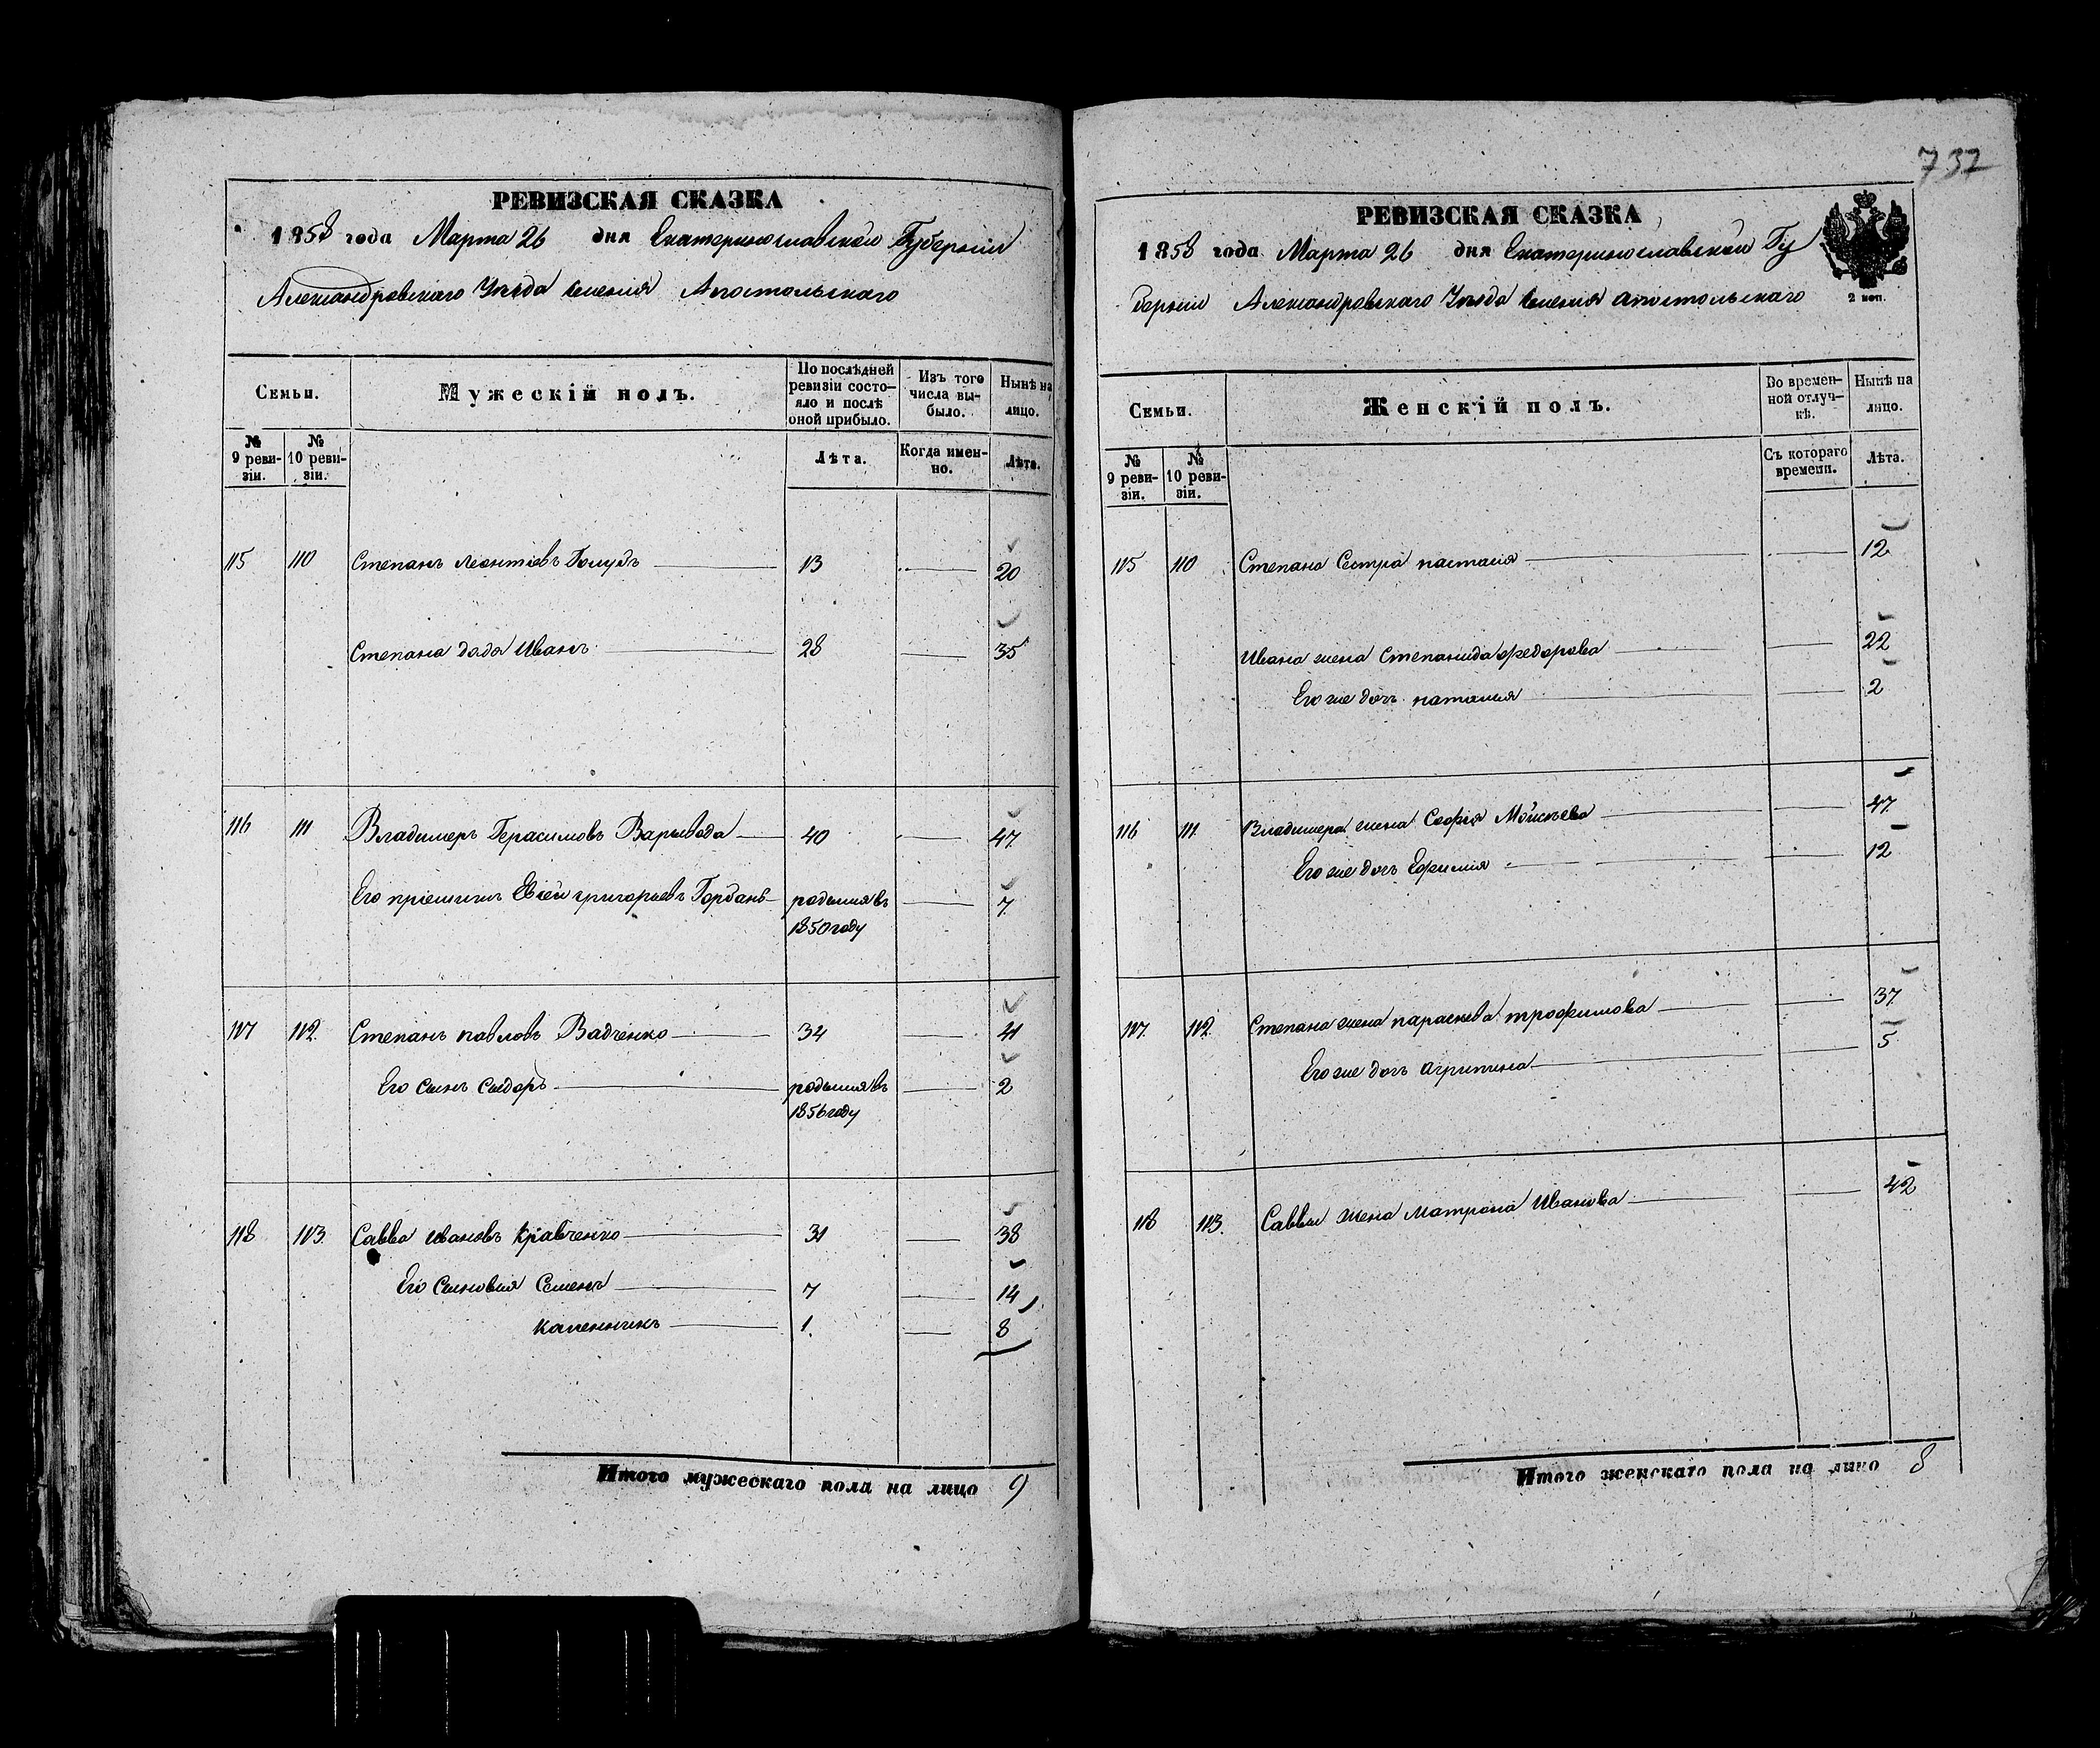 РЕВИЗСКАЯ СКАЗКА
1858 года Марта 26 дня Екатеринославской Губернии
Александровскаго Уѣзда имения Апостольскаго
Семьи.
Мужескій полъ.
По послѣдней ревизіи состояло и послѣ оной прибыло.
Изъ того числа выбыло.
Нынѣ на лицо.
№ 9 ревизіи.
№ 10 ревизіи.
Лѣта.
Когда именно.
Лѣта.
115 110 Степанъ Леонтіевъ Голубъ 13 20
Степана дядя Иванъ 28 35
116 111 Владимеръ Герасимовъ Варывода 40 47
Его пріемишъ Евсей григорьевъ Горбань родился въ 7
1850 году
117 112. Степанъ павловъ Вадченко 34 41
Его Сынъ Сыдоръ родился въ 2
1856 году
118 113. Савва Ивановъ Кравченко 31 38
Его Сыновья Семенъ 7 14
Каленникъ 1. 8
Итого мужескаго пола на лицо 9
737
РЕВИЗСКАЯ СКАЗКА
1858 года Марта 26 дня Екатеринославской Гу
берніи Александровскаго Уѣзда имения апостольскаго
2 коп.
Семьи.
Женскій полъ.
Во временной отлучкѣ.
Нынѣ на лицо.
№ 9 ревизіи.
№ 10 ревизіи.
Съ котораго времени.
Лѣта.
115 110 Степана Сестра настасія 12
Ивана жена Степанида федорова 22
Его же дочь наталия 2
116 111 Владимера жена Софія Мойсѣева 47
Его же дочь Ефимия 12
117. 112. Степана жена параскева трофимова 37
Его же дочь агрипина 5
118 113. Саввы жена Матрона Иванова 42
Итого женскаго пола на лицо 8